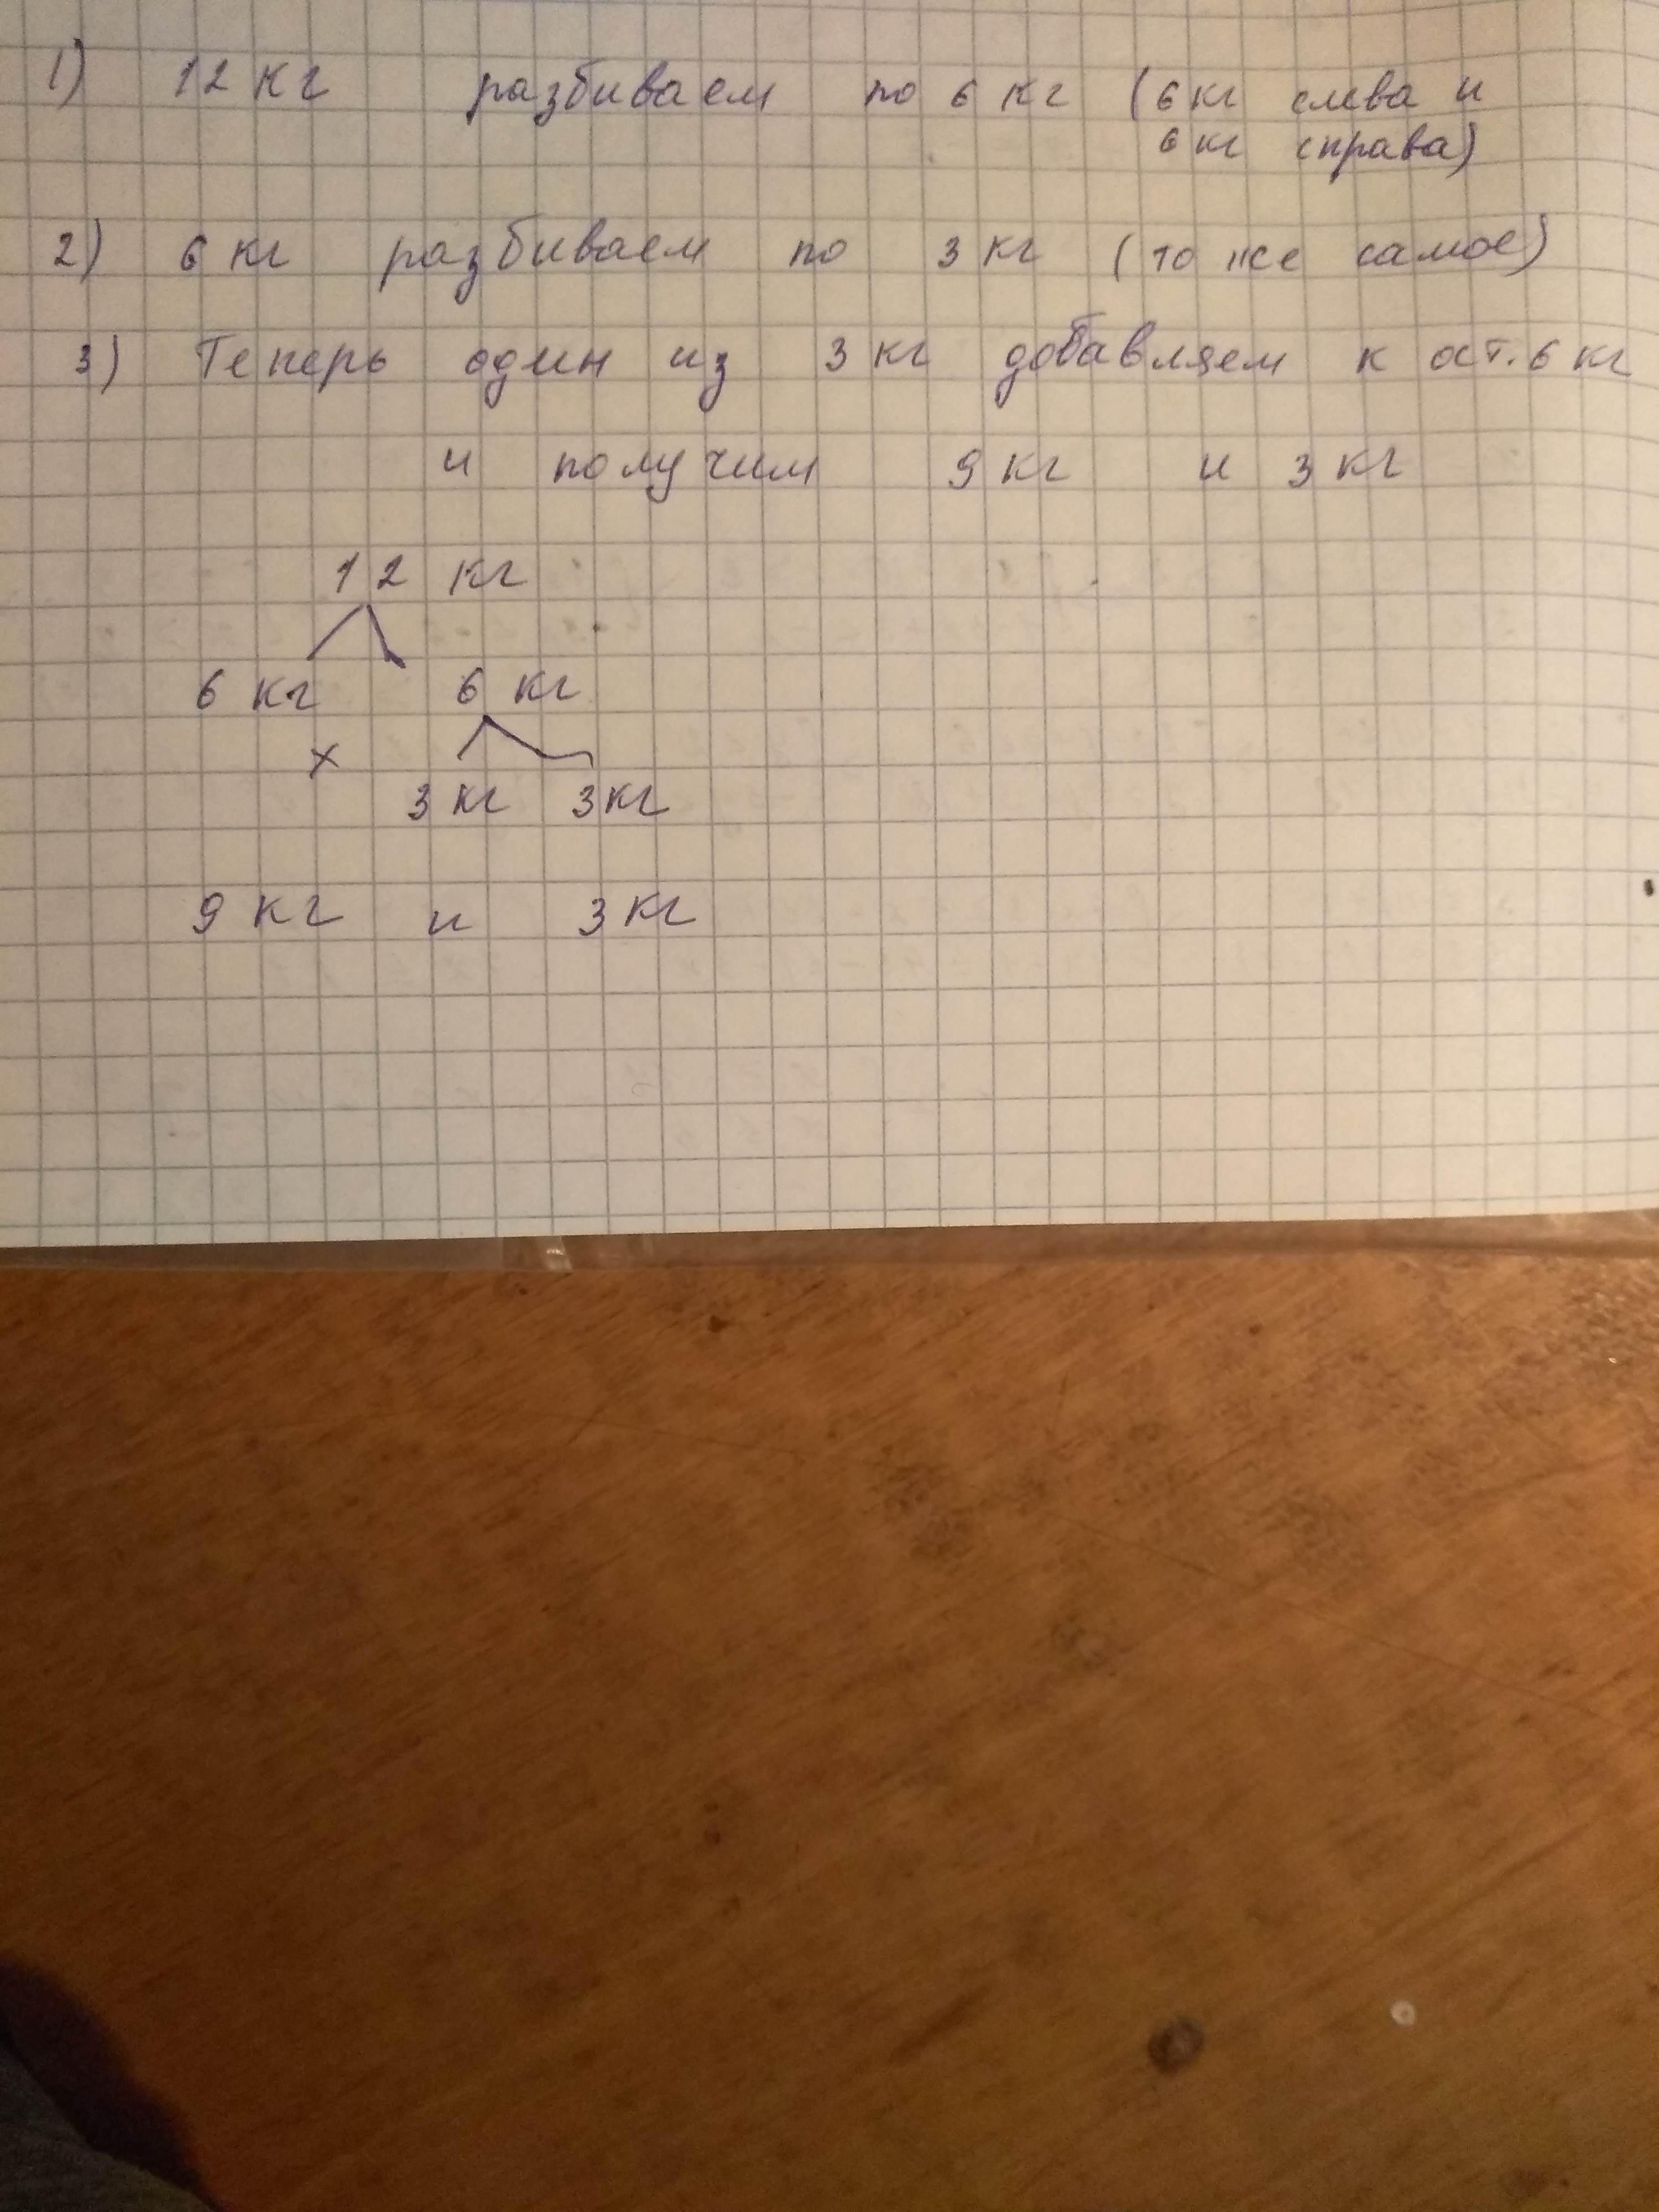 1) 12 кг разбиваем по 6 кг (6 кг слева и
6 кг справа)
2) 6 кг разбиваем по 3 кг (то же самое)
3) Теперь один из 3 кг добавляем к ост. 6 кг
и получим 9 кг и 3 кг
12 кг
6 кг 6 кг
х
3 кг 3 кг
9 кг и 3 кг